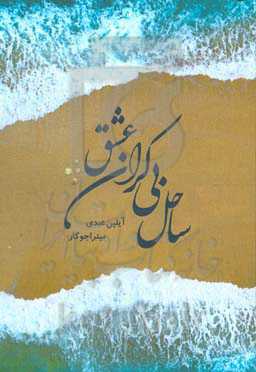 ساحل بی کران عشق
آیلین عبدی
میترا جوکار